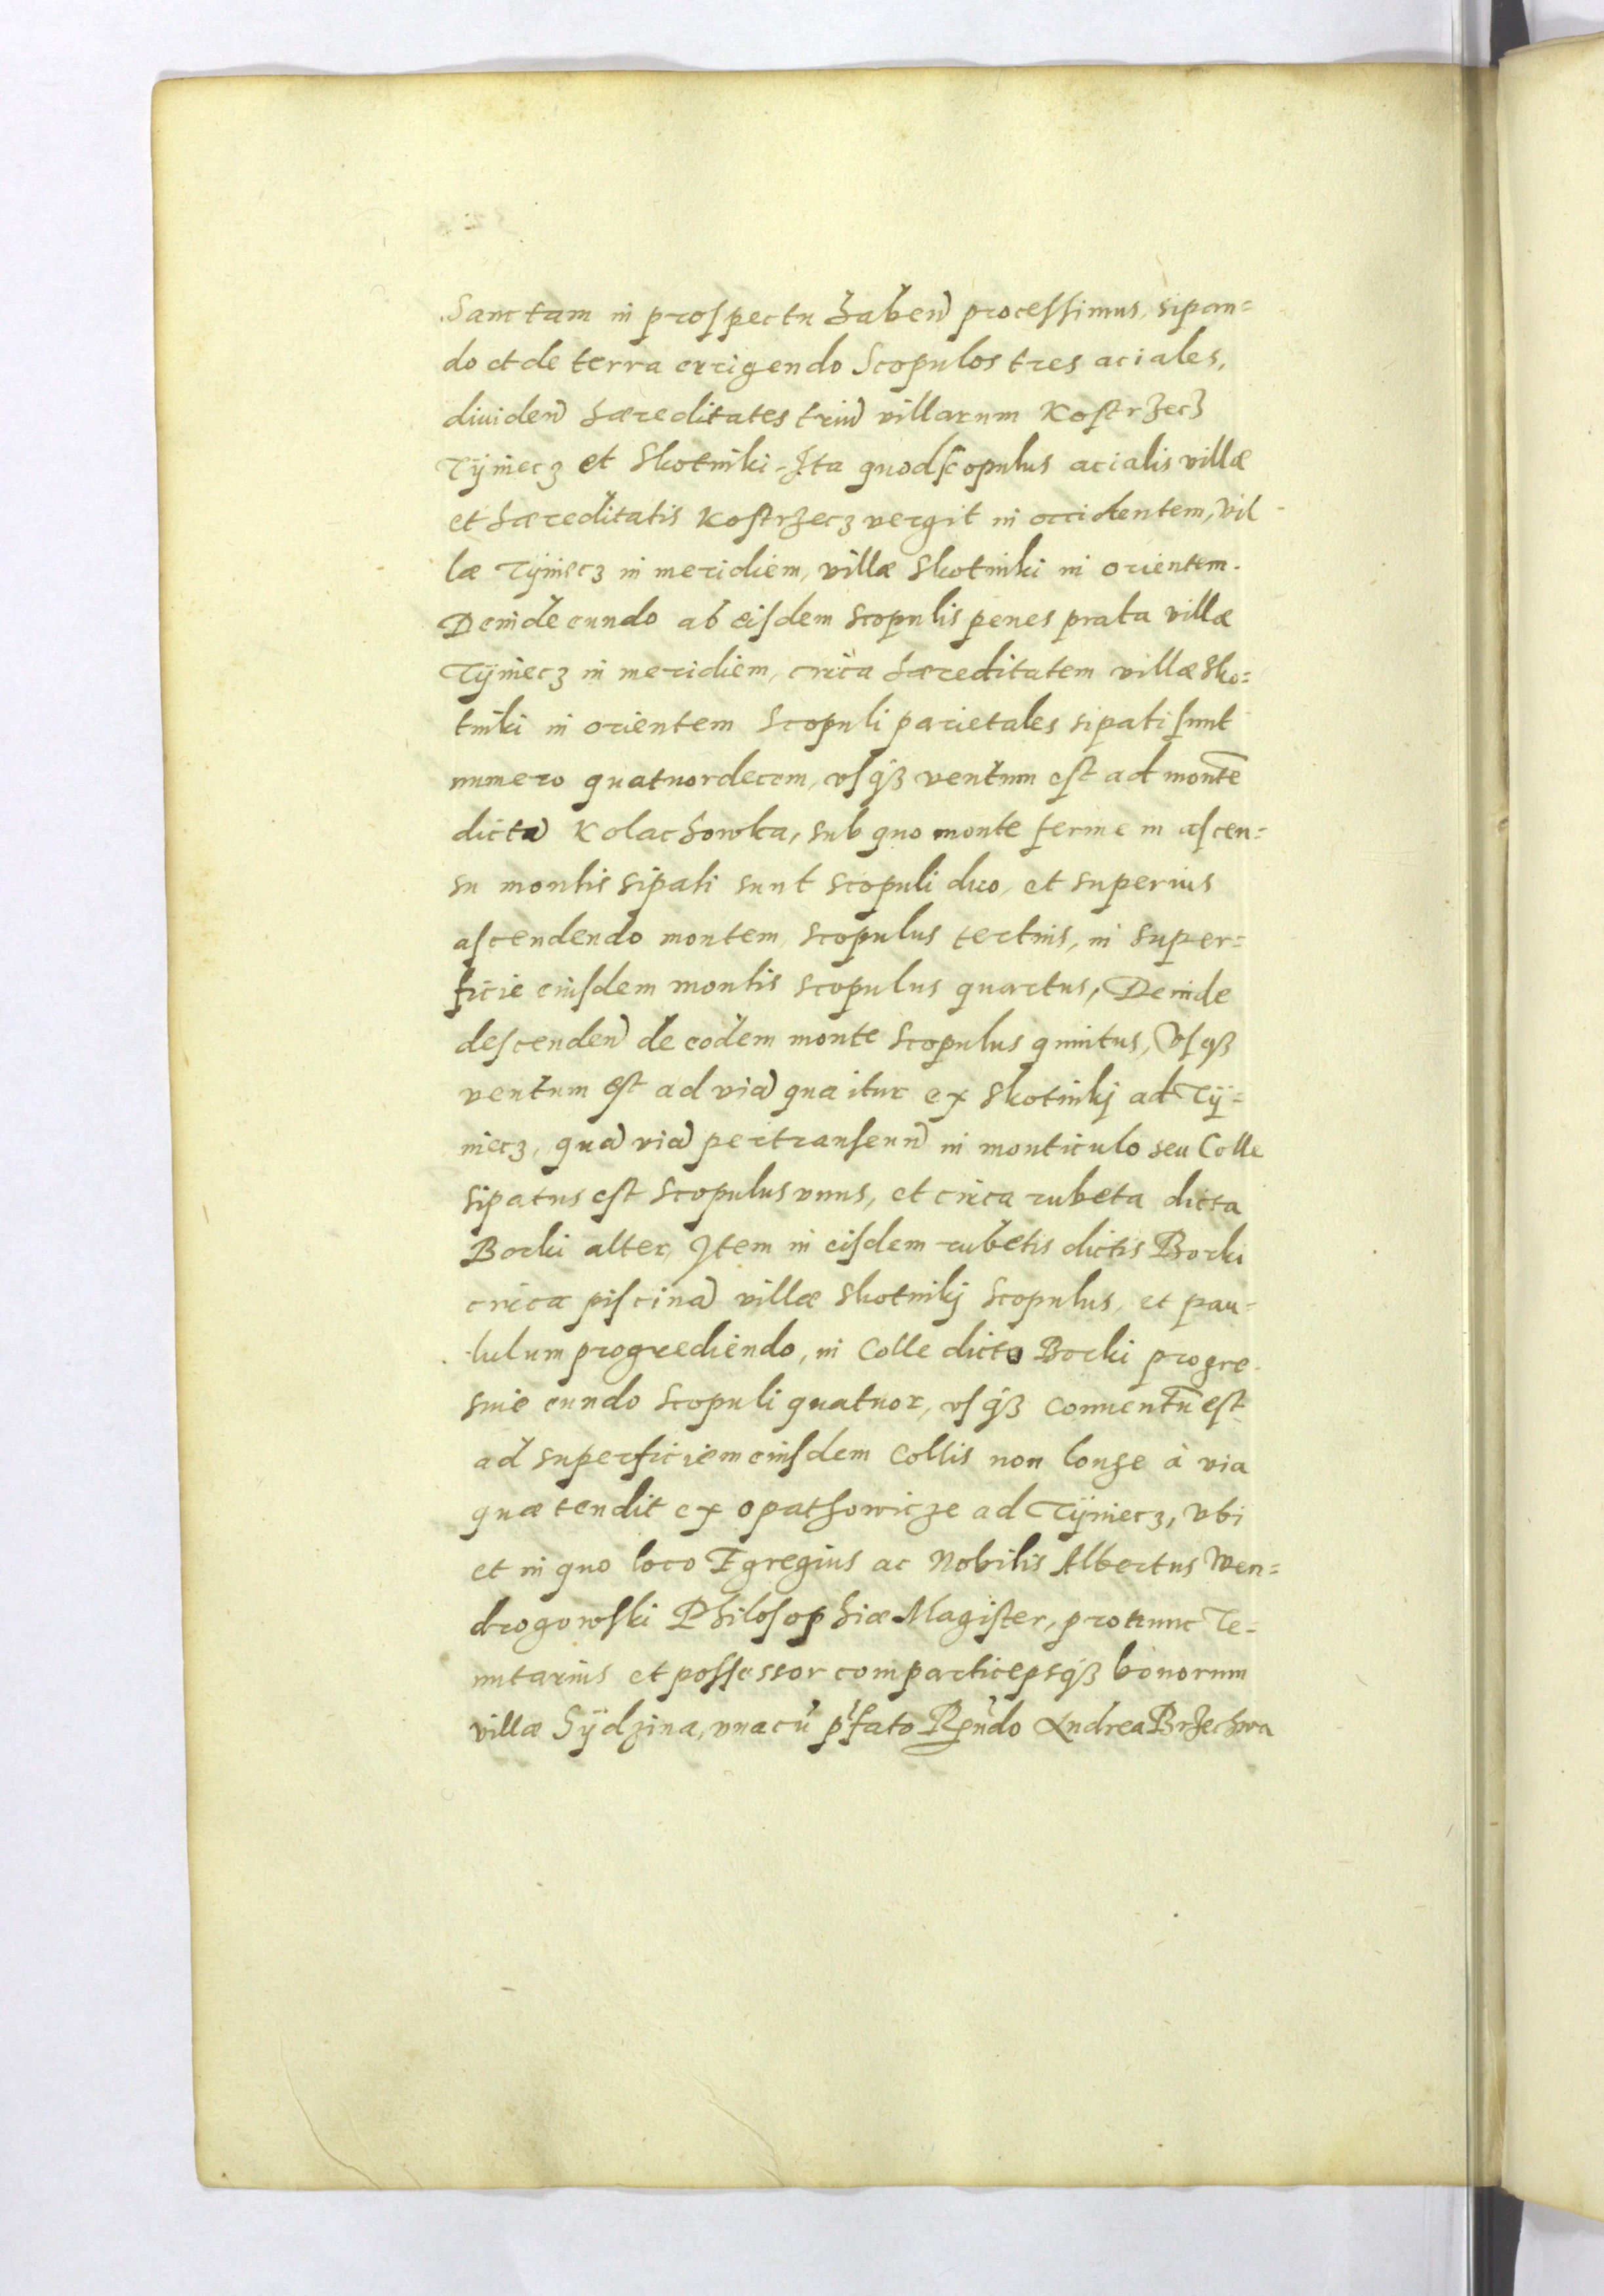 Sanctam in prospectu habeñ processimus, sipan=
do et de terra errigendo Scopulos tres aciales,
diuideñ hæreditates triũ villarum Kostrzecz
Tÿniecz et Skotniki. Ita quod scopulus acialis villæ
et hæreditatis Kostrzecz vergit in occidentem, vil
læ Tÿniecz in meridiem, villæ Skotniki in orientem.
Deinde eundo ab eisdem scopulis penes prata villæ
Tÿniecz in meridiem, circa hæreditatem villæ Sko=
tniki in orientem Scopuli parietales sipati sunt
numero quatuordecem, vsqꝫ ventum est ad montē
dictã Kolachowka, sub quo monte ferme in ascen=
su montis sipati sunt scopuli duo, et superius
ascendendo montem, scopulus tertius, in super=
ficie eiusdem montis scopulus quartus, Deinde
descendeñ de eodem monte scopulus quintus, Vsqꝫ
ventum est ad viã qua itur ex Skotnikj ad Tÿ=
niecz, quã viã pertranseuñ in monticulo seu Colle
sipatus est scopulus vnus, et circa rubeta dicta
Borki alter, Item in eisdem rubetis dictis Borki
circa piscinã villæ Skotnikj Scopulus, et pau=
lulum progrediendo, in Colle dicto Borki progre
siue eundo Scopuli quatuor, vsqꝫ conuentũ est
ad superficiem eiusdem Collis non longe à via
quæ tendit ex Opathowicze ad Tÿniecz, vbi
et in quo loco Egregius ac Nobilis Albertus Wen=
drogowski Philosophiæ Magister, pro nunc Te=
nutarius et possessor comparticepsqꝫ bonorum
villæ Sÿdzina, vnacũ p̃fato Rñdo Andrea Brzechwa